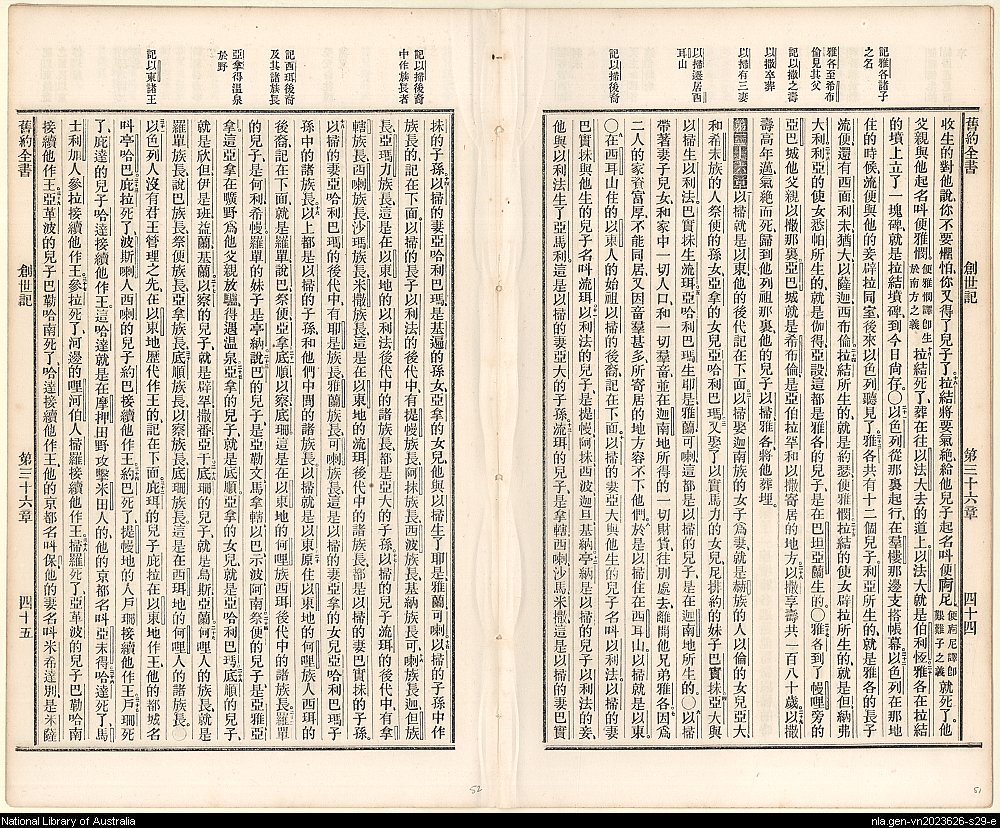 記雅各諸子
之名
雅各至希布
倫見其父
記以撒之壽
以撒卒葬
以掃有三妻
以掃遷居西
珥山
記以掃後裔
舊約全書 創世記 第三十六章 四十四
收生的對他說、你不要懼怕、你又得了兒子了。拉結將要氣絕、給他兒子起名叫便阿尼、便阿尼譯卽艱難子之義就死了、他
父親與他起名叫便雅憫。便雅憫譯卽生於南方之義拉結死了、葬在往以法大去的道上、以法大就是伯利恆。雅各在拉結
的墳上立了一塊碑、就是拉結墳碑、到今日尙存。〇以色列從那裏起行、在羣樓那邊支搭帳幕。以色列在那地
住的時候、流便與他的妾辟拉同室、後來以色列聽見了。雅各共有十二個兒子。利亞所生的、就是雅各的長子
流便、還有西面利未猶大以薩迦西布倫。拉結所生的、就是約瑟便雅憫。拉結的使女辟拉所生的、就是但納弗
大利。利亞的使女悉帕所生的、就是伽得亞設、這都是雅各的兒子、是在巴坦亞蘭生的。〇雅各到了幔哩旁的
亞巴城他父親以撒那裏、亞巴城就是希布倫、是亞伯拉罕和以撒寄居的地方。以撒享壽共一百八十歲。以撒
壽高年邁氣絕而死、歸到他列祖那裏、他的兒子以掃雅各、將他葬埋。
第三十六章以掃就是以東、他的後代記在下面。以掃娶迦南族的女子爲妻、就是赫族的人以倫的女兒亞大、
和希未族的人祭便的孫女亞拿的女兒亞哈利巴瑪。又娶了以實馬力的女兒尼排約的妹子巴實抹。亞大與
以掃生以利法、巴實抹生流珥。亞哈利巴瑪生耶是雅蘭可喇、這都是以掃的兒子、是在迦南地所生的。〇以掃
帶著妻子兒女、和家中一切人口、和一切羣畜、並在迦南地所得的一切財貨、往別處去、離開他兄弟雅各。因爲
二人的家資富厚、不能同居、又因畜羣甚多、所寄居的地方容不下他們。於是以掃住在西珥山、以掃就是以東。
〇在西珥山住的以東人的始祖以掃的後裔記在下面。以掃的妻亞大與他生的兒子名叫以利法、以掃的妻
巴實抹與他生的兒子名叫流珥。以利法的兒子、是提幔阿抹西波迦旦基納。亭納是以掃的兒子以利法的妾、
他與以利法生了亞馬利、這是以掃的妻亞大的子孫。流珥的兒子、是拿轄西喇沙馬米撒、這是以掃的妻巴實
記以掃後裔
中作族長者
記西珥後裔
及其諸族長
亞拿得溫泉
於野
記以東諸王
抹的子孫。以掃的妻亞哈利巴瑪、是基遍的孫女、亞拿的女兒、他與以掃生了耶是雅蘭可喇。以掃的子孫中作
族長的、記在下面、以掃的長子以利法的後代中、有提幔族長、阿抹族長、西波族長、基納族長、可喇族長、迦但族
長、亞瑪力族長、這是在以東地的以利法後代中的諸族長、都是亞大的子孫。以掃的兒子流珥的後代中、有拿
轄族長、西喇族長、沙瑪族長、米撒族長、這是在以東地的流珥後代中的諸族長、都是以掃妻巴實抹的子孫。
以掃的妻亞哈利巴瑪的後代中、有耶是族長、雅蘭族長、可喇族長、這是以掃的妻亞拿的女兒亞哈利巴瑪子
孫中的諸族長。以上都是以掃的子孫和他們中間的諸族長、以掃就是以東。原住以東地的何哩族人西珥的
後裔記在下面、就是羅單說巴祭便亞拿、底順以察底珊、這是在以東地的何哩族西珥後代中的諸族長。羅單
的兒子是何利希幔、羅單的妹子是亭納。說巴的兒子是亞勒文馬拿轄以巴示波阿南。祭便的兒子是亞雅亞
拿、這亞拿在曠野爲他父親放驢、得遇溫泉。亞拿的兒子就是底順、亞拿的女兒就是亞哈利巴瑪。底順的兒子、
就是欣但伊是班益蘭基蘭。以察的兒子、就是辟罕撒番亞干。底珊的兒子、就是烏斯亞蘭。何哩人的族長、就是
羅單族長、說巴族長、祭便族長、亞拿族長、底順族長、以察族長、底珊族長、這是在西珥地的何哩人的諸族長。〇
以色列人沒有君王管理之先、在以東地歷代作王的、記在下面。庇珥的兒子庇拉在以東地作王、他的都城名
叫亭哈巴。庇拉死了、波斯喇人西喇的兒子約巴接續他作王。約巴死了、提幔地的人戶珊接續他作王。戶珊死
了、庇達的兒子哈達接續他作王、這哈達就是在摩押田野攻擊米田人的、他的京都名叫亞未得。哈達死了、馬
士利加人參拉接續他作王。參拉死了、河邊的哩河伯人掃羅接續他作王。掃羅死了、亞革波的兒子巴勒哈南
接續他作王。亞革波的兒子巴勒哈南死了、哈達接續他作王、他的京都名叫保、他的妻名叫米希達別、是米薩
舊約全書 創世記 第三十六章 四十五
52
51
National Library of Australia
nla.gen-vn2023626-s29-e